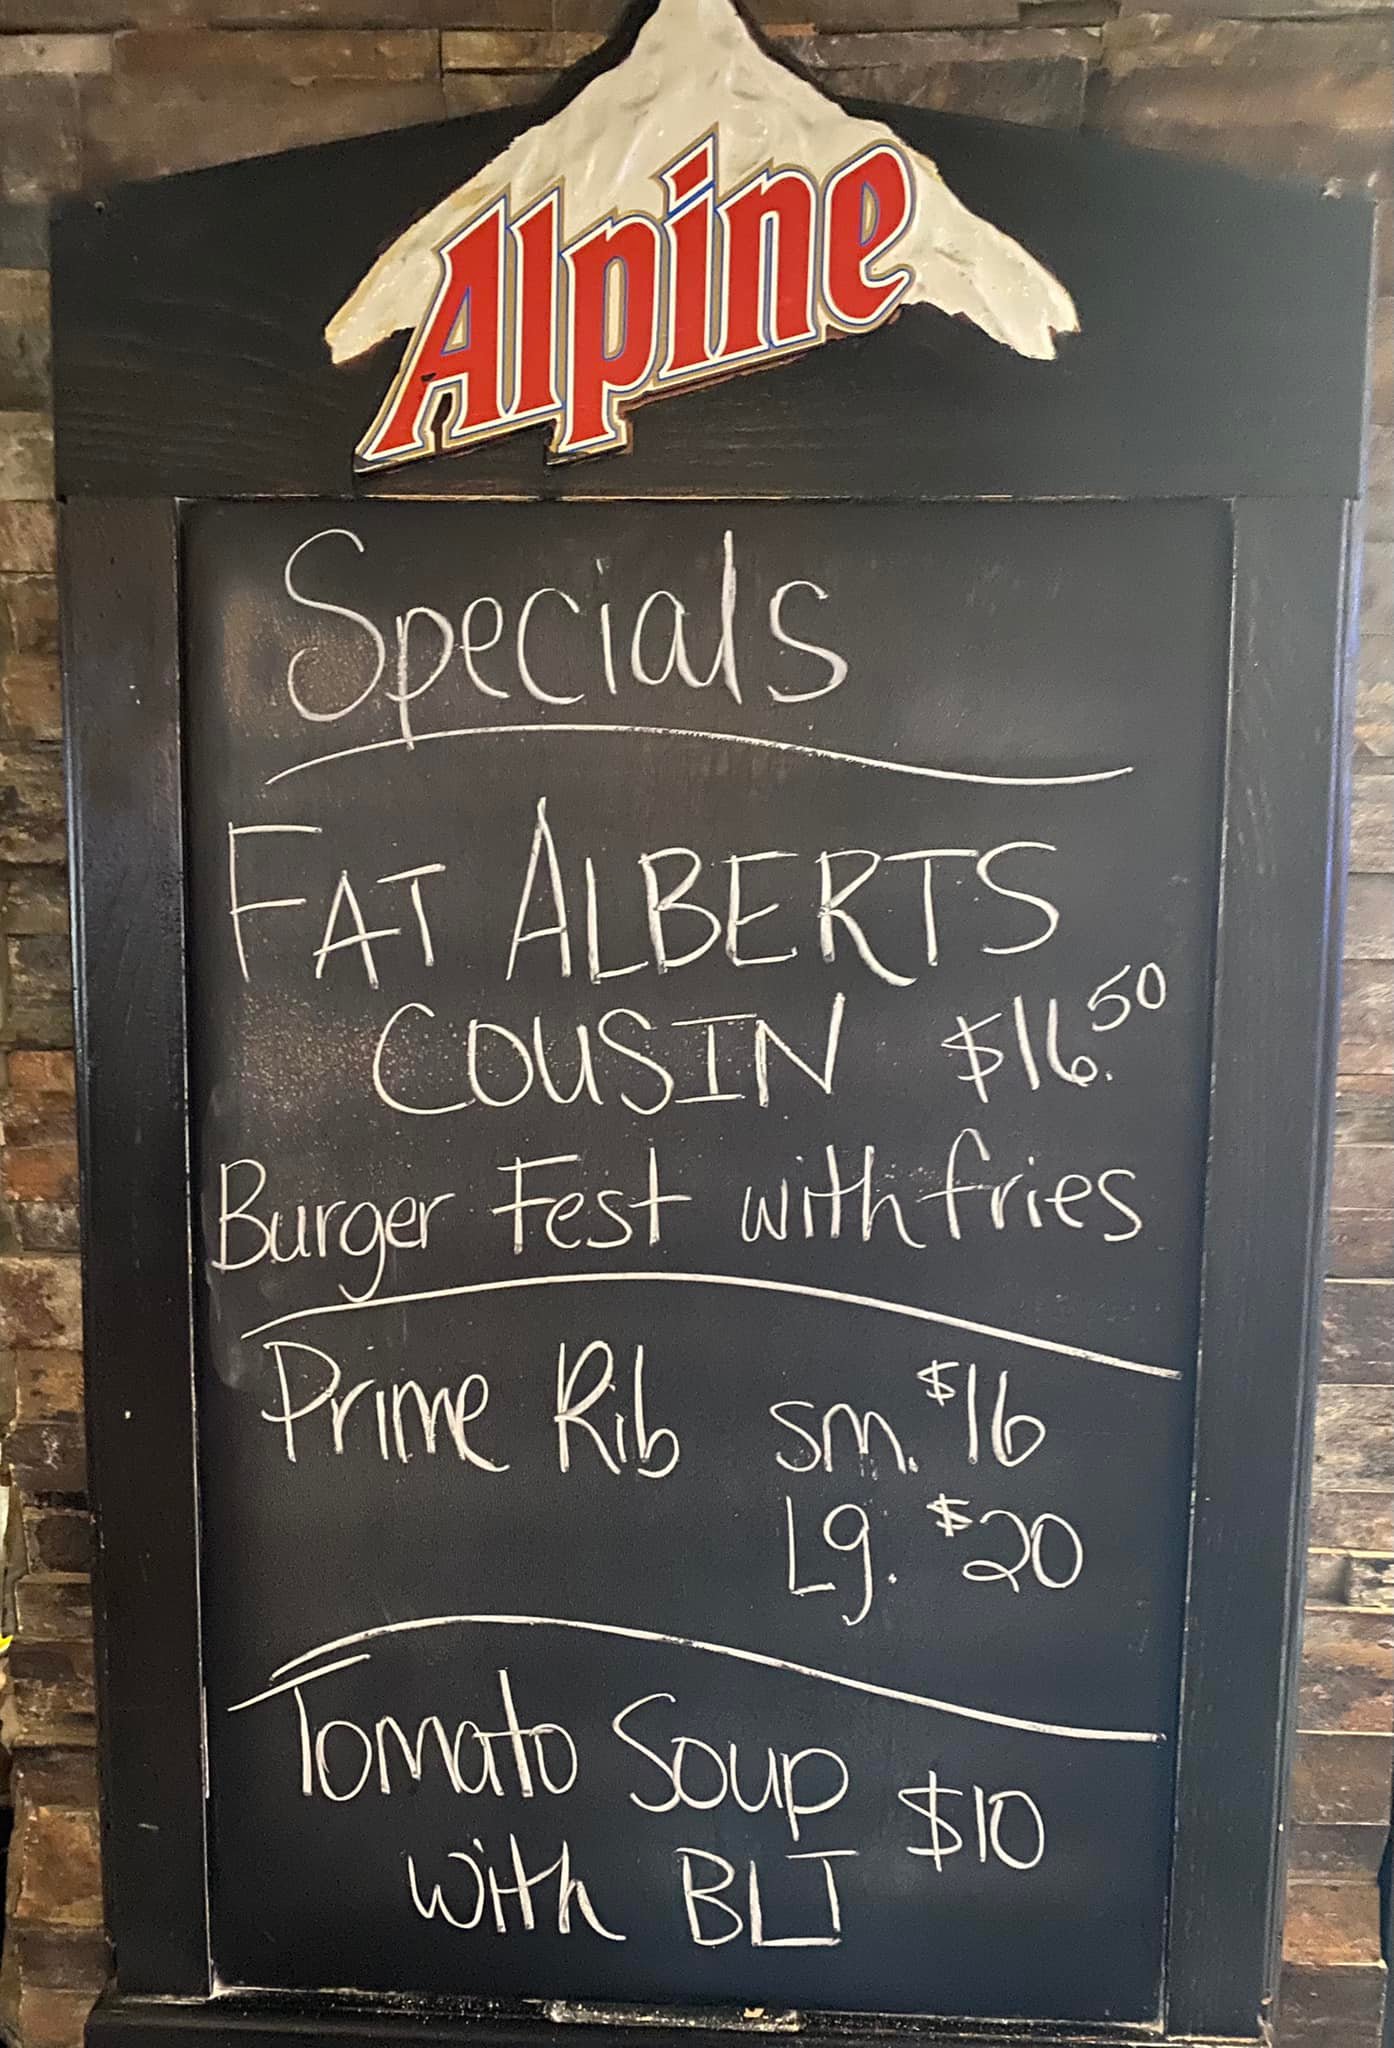 Alpine
Specials
FAT ALBERTS
COUSIN $16.50
Burger Fest with fries
Prime Rib sm. $16
Lg. $20
Tomato Soup
with BLT $10